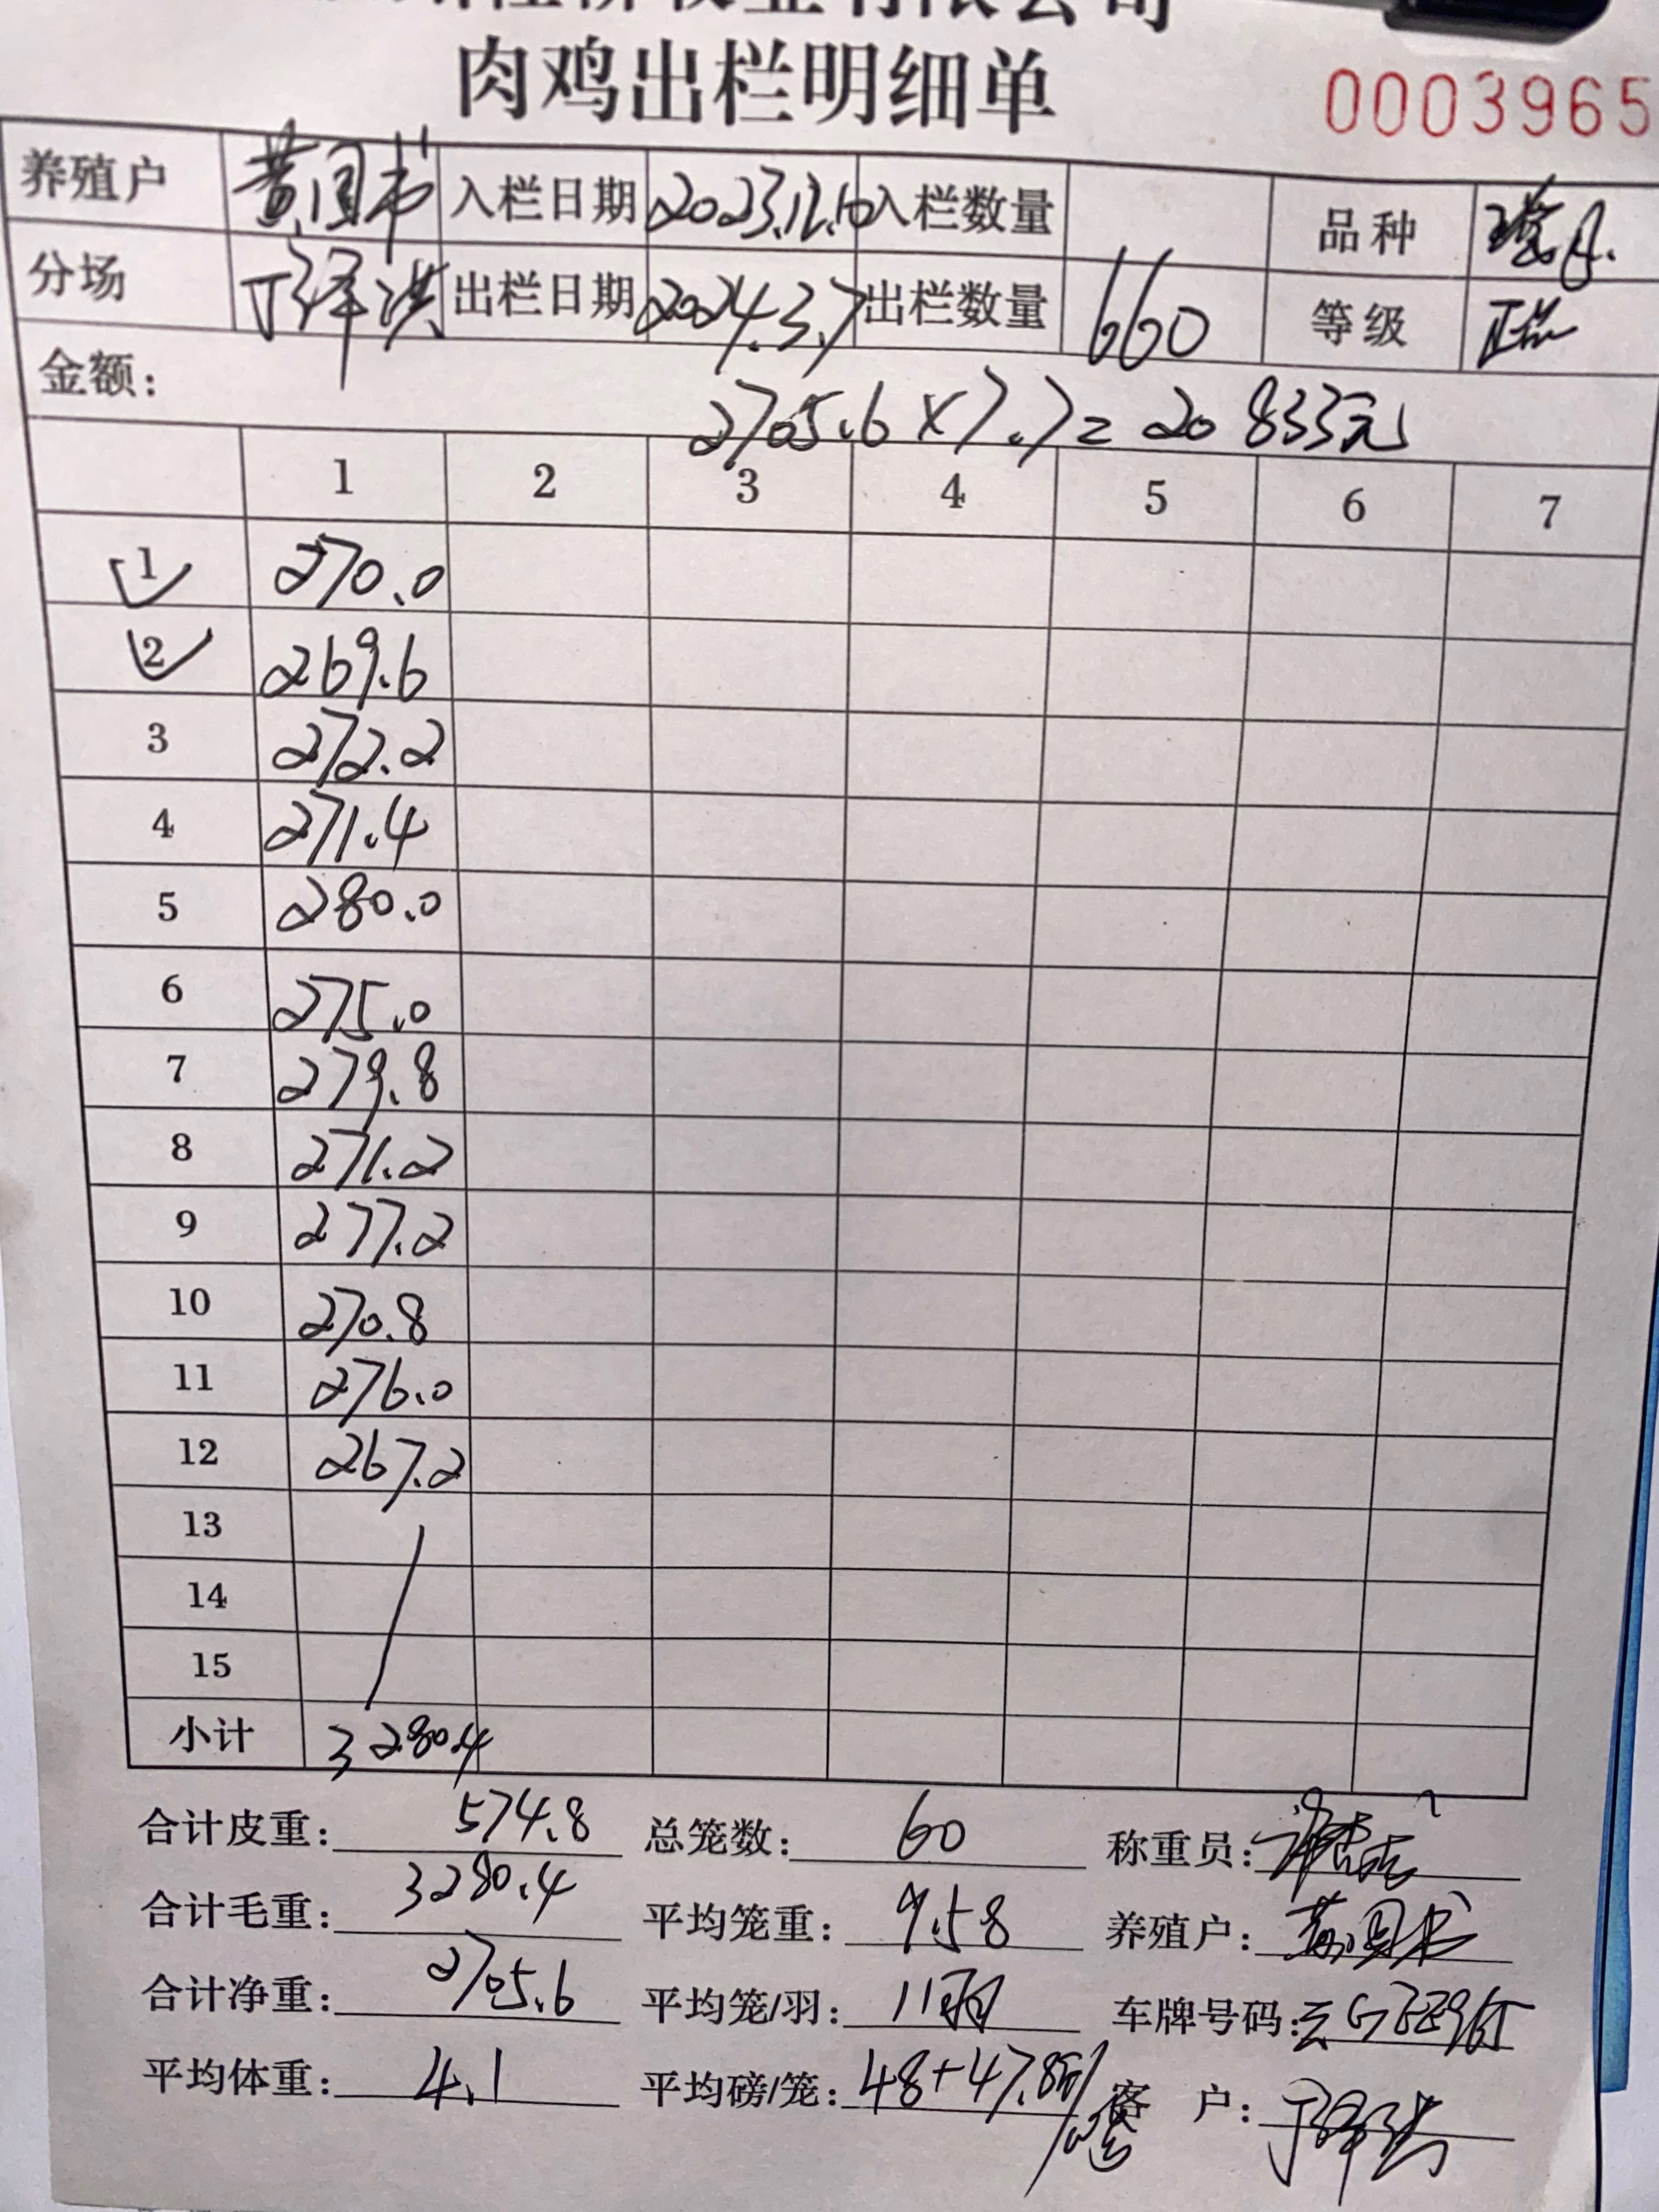 有限公司
肉鸡出栏明细单
0003965
养殖户 黄国书 入栏日期 2023.12.10 入栏数量 品种
分场 丁泽洪 出栏日期 2024.3.7 出栏数量 660 等级 正品
金额: 2705.6×7.7=20833元
1 2 3 4 5 6 7
1 270.0
2 269.6
3 272.2
4 271.4
5 280.0
6 275.0
7 279.8
8 271.2
9 277.2
10 270.8
11 276.0
12 267.2
13
14
15
小计 3280.4
合计皮重: 574.8 总笼数: 60 称重员:
合计毛重: 3280.4 平均笼重: 9.58 养殖户: 黄国书
合计净重: 2705.6 平均笼/羽: 11羽 车牌号码:
平均体重: 4.1 平均磅/笼: 48+47.8 客 户: 丁泽洪